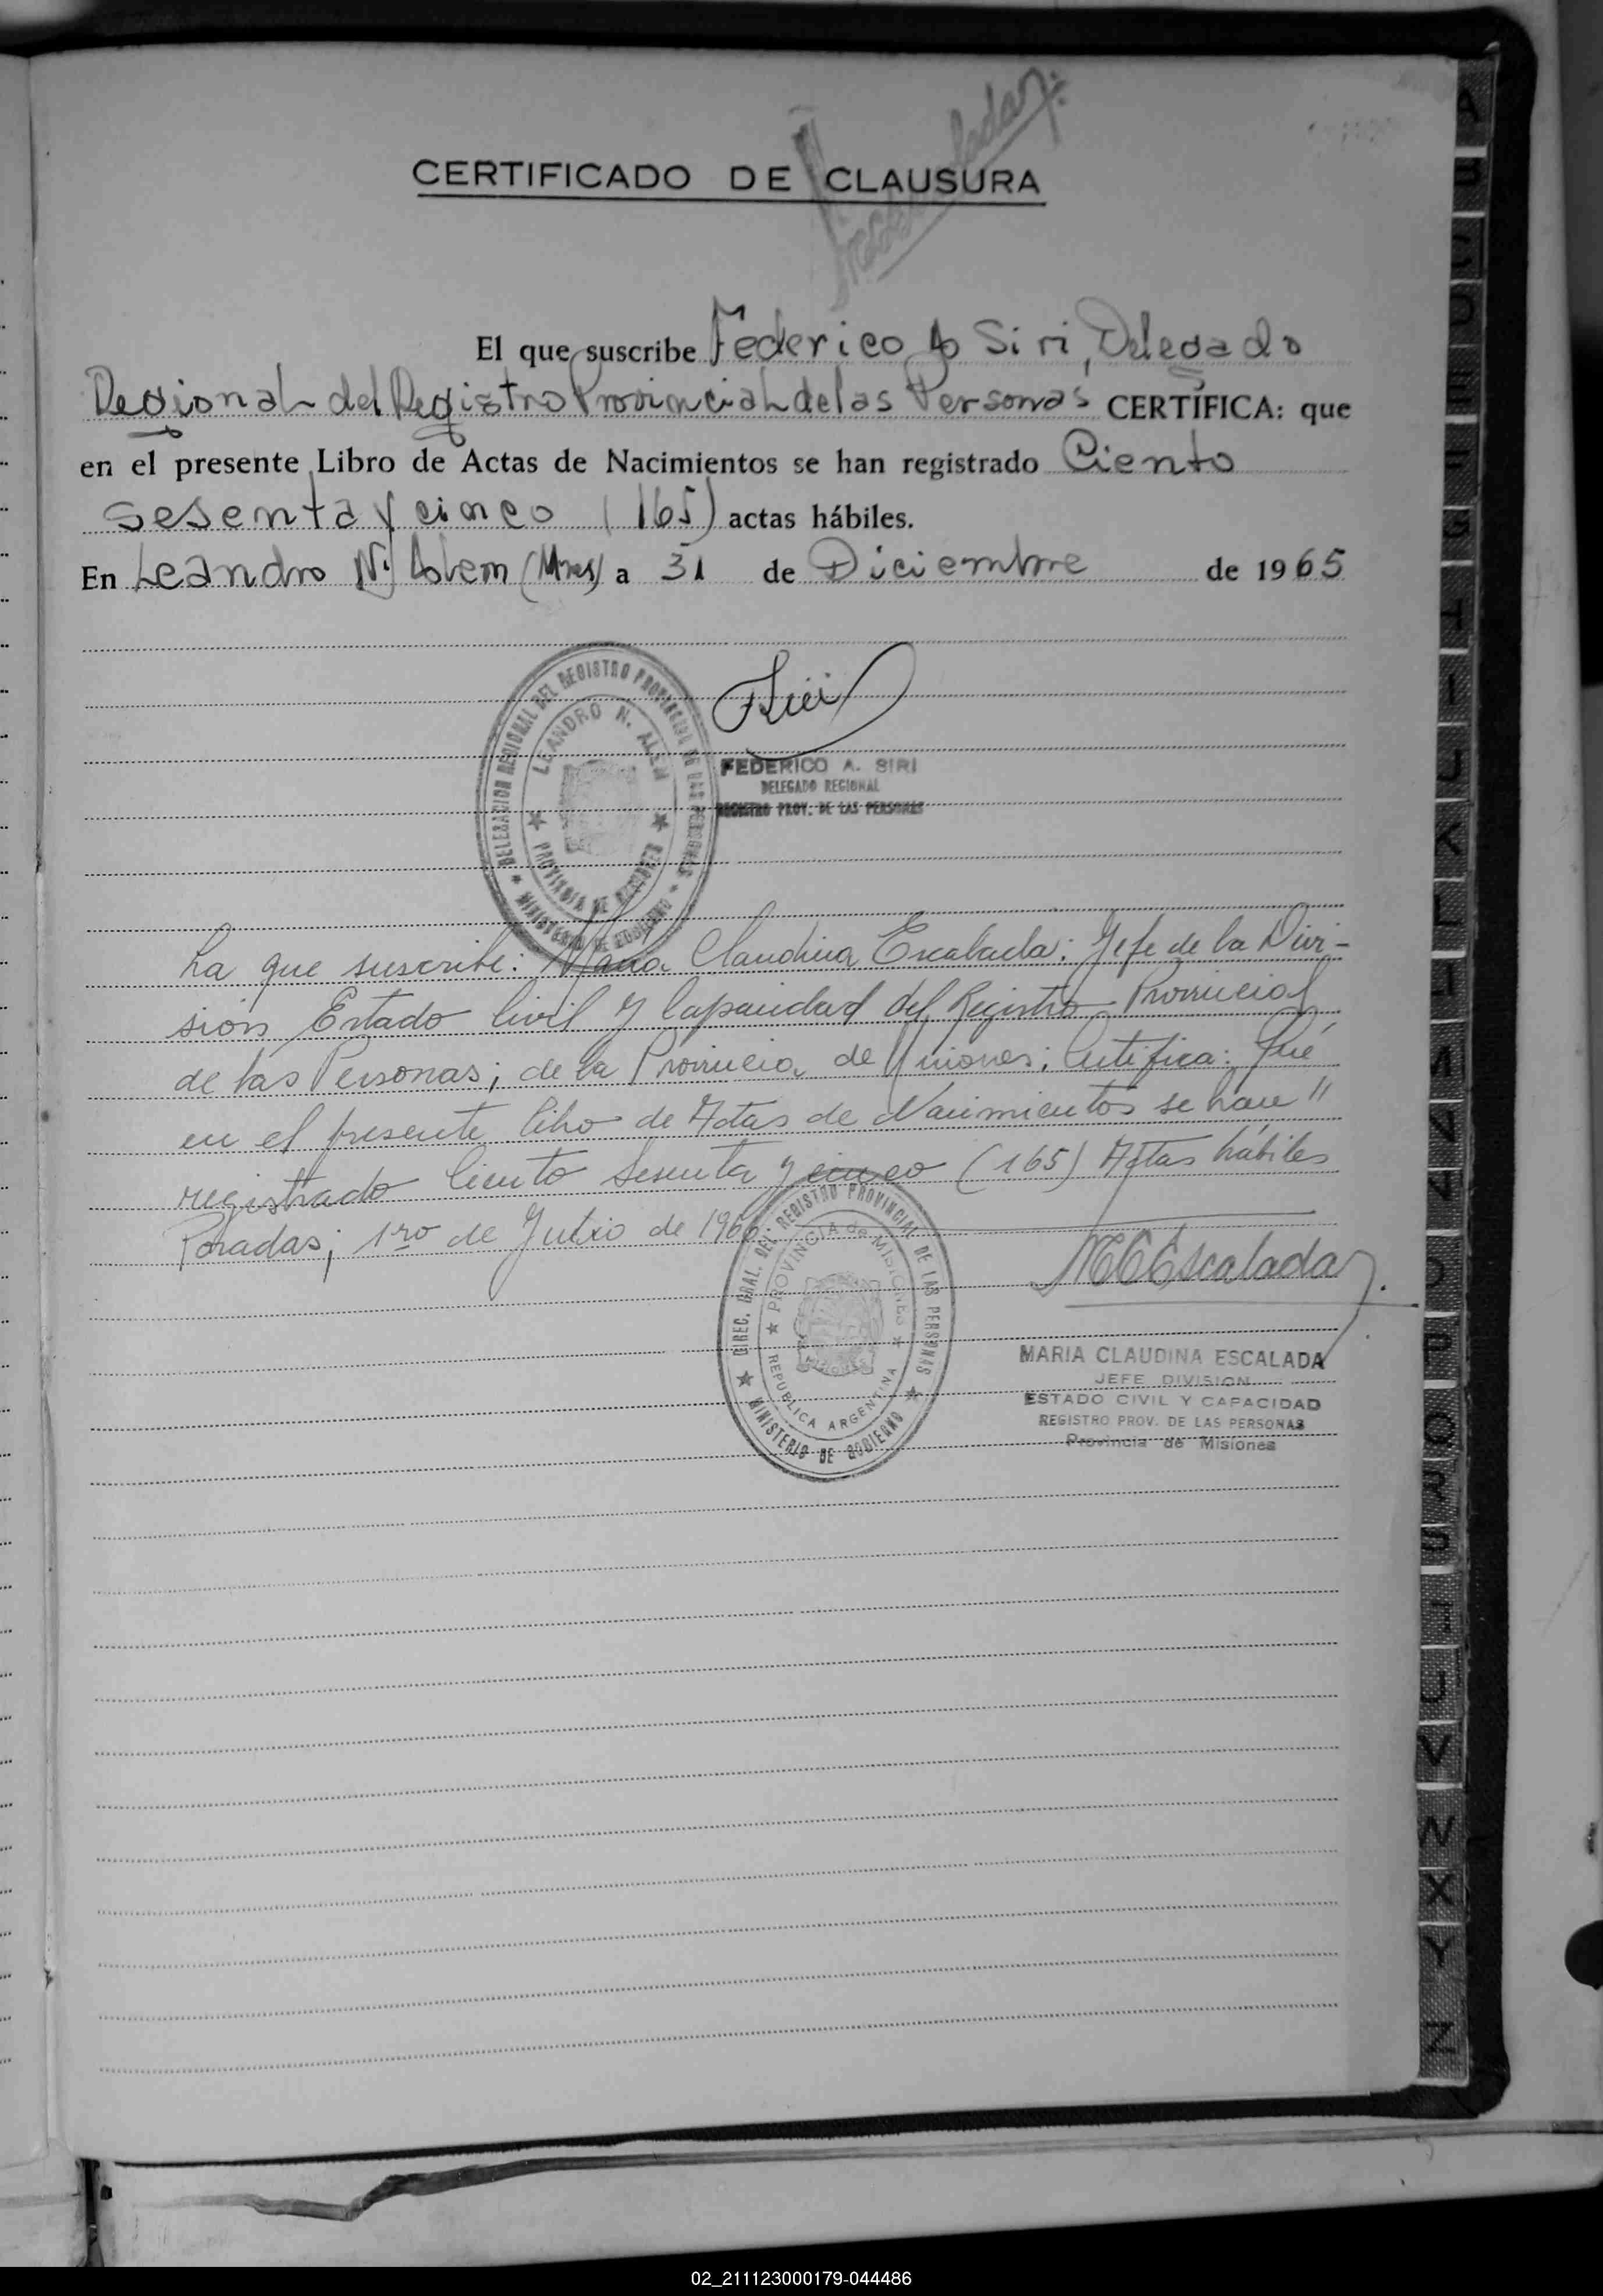 CERTIFICADO DE CLAUSURA
El que suscribe Federico A Siri, Delegado
Regional del Registro Provincial de las Personas CERTIFICA: que
en el presente Libro de Actas de Nacimientos se han registrado Ciento
sesenta y cinco (165) actas hábiles.
En Leandro N. Alem (Mnes) a 31 de Diciembre de 1965
DELEGACION REGIONAL DEL REGISTRO PROVINCIAL DE LAS PERSONAS
MINISTERIO DE GOBIERNO
LEANDRO N. ALEM
PROVINCIA DE MISIONES
FSiri
FEDERICO A. SIRI
DELEGADO REGIONAL
REGISTRO PROV. DE LAS PERSONAS
La que suscribe: Maria Claudina Escalada: Jefe de la Divi-
sion Estado Civil y Capacidad del Registro Provincial
de las Personas; de la Provincia de Misiones; Certifica: Que
en el presente libro de Actas de Nacimientos se han "
registrado Ciento Sesenta y cinco (165) Actas hábiles
Posadas; 1ro de Julio de 1966.
DIREC. GRAL. DEL REGISTRO PROVINCIAL DE LAS PERSONAS
MINISTERIO DE GOBIERNO
PROVINCIA de MISIONES
REPUBLICA ARGENTINA
MISIONES
MCEscalada
MARIA CLAUDINA ESCALADA
JEFE DIVISION
ESTADO CIVIL Y CAPACIDAD
REGISTRO PROV. DE LAS PERSONAS
Provincia de Misiones
A
B
C
D
E
F
G
H
I
J
K
L
LL
M
N
Ñ
O
P
Q
R
S
T
U
V
W
X
Y
Z
02_211123000179-044486